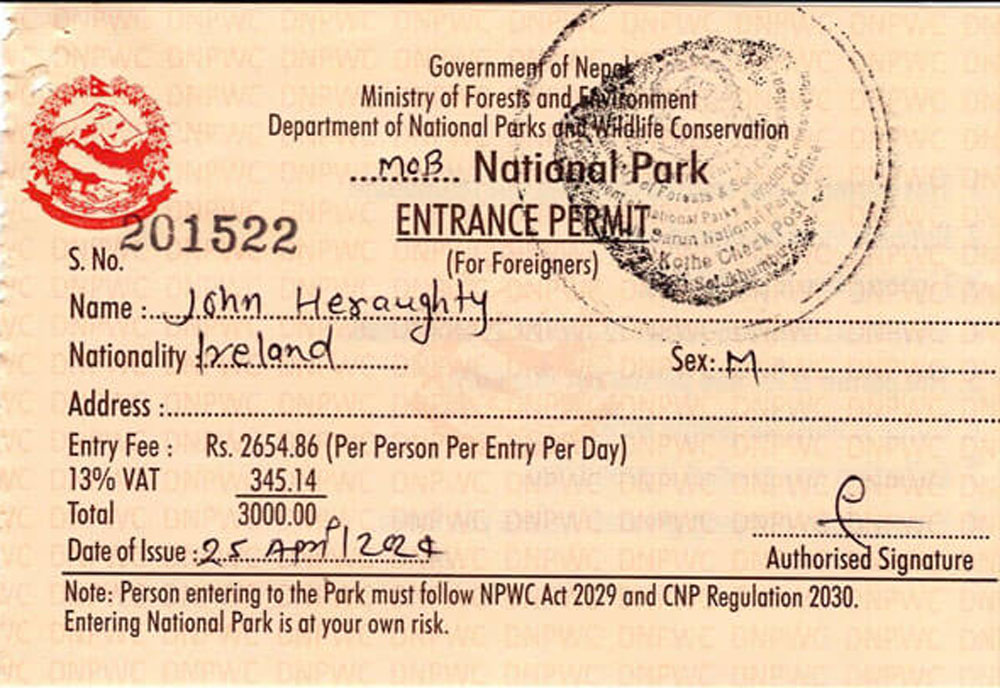 Government of Nepal
Ministry of Forests and Environment
Department of National Parks and Wildlife Conservation
...MOB... National Park
ENTRANCE PERMIT
201522
S. No.
(For Foreigners)
Name : John Heraughty
Nationality Ireland Sex: M
Address :
Entry Fee : Rs. 2654.86 (Per Person Per Entry Per Day)
13% VAT 345.14
Total 3000.00
Date of Issue : 25 April 2024
Authorised Signature
Note: Person entering to the Park must follow NPWC Act 2029 and CNP Regulation 2030.
Entering National Park is at your own risk.
of Forests & Soil
National Parks &
Barun National Park Office
Kothe Check Post
Solukhumbu
DNPWC